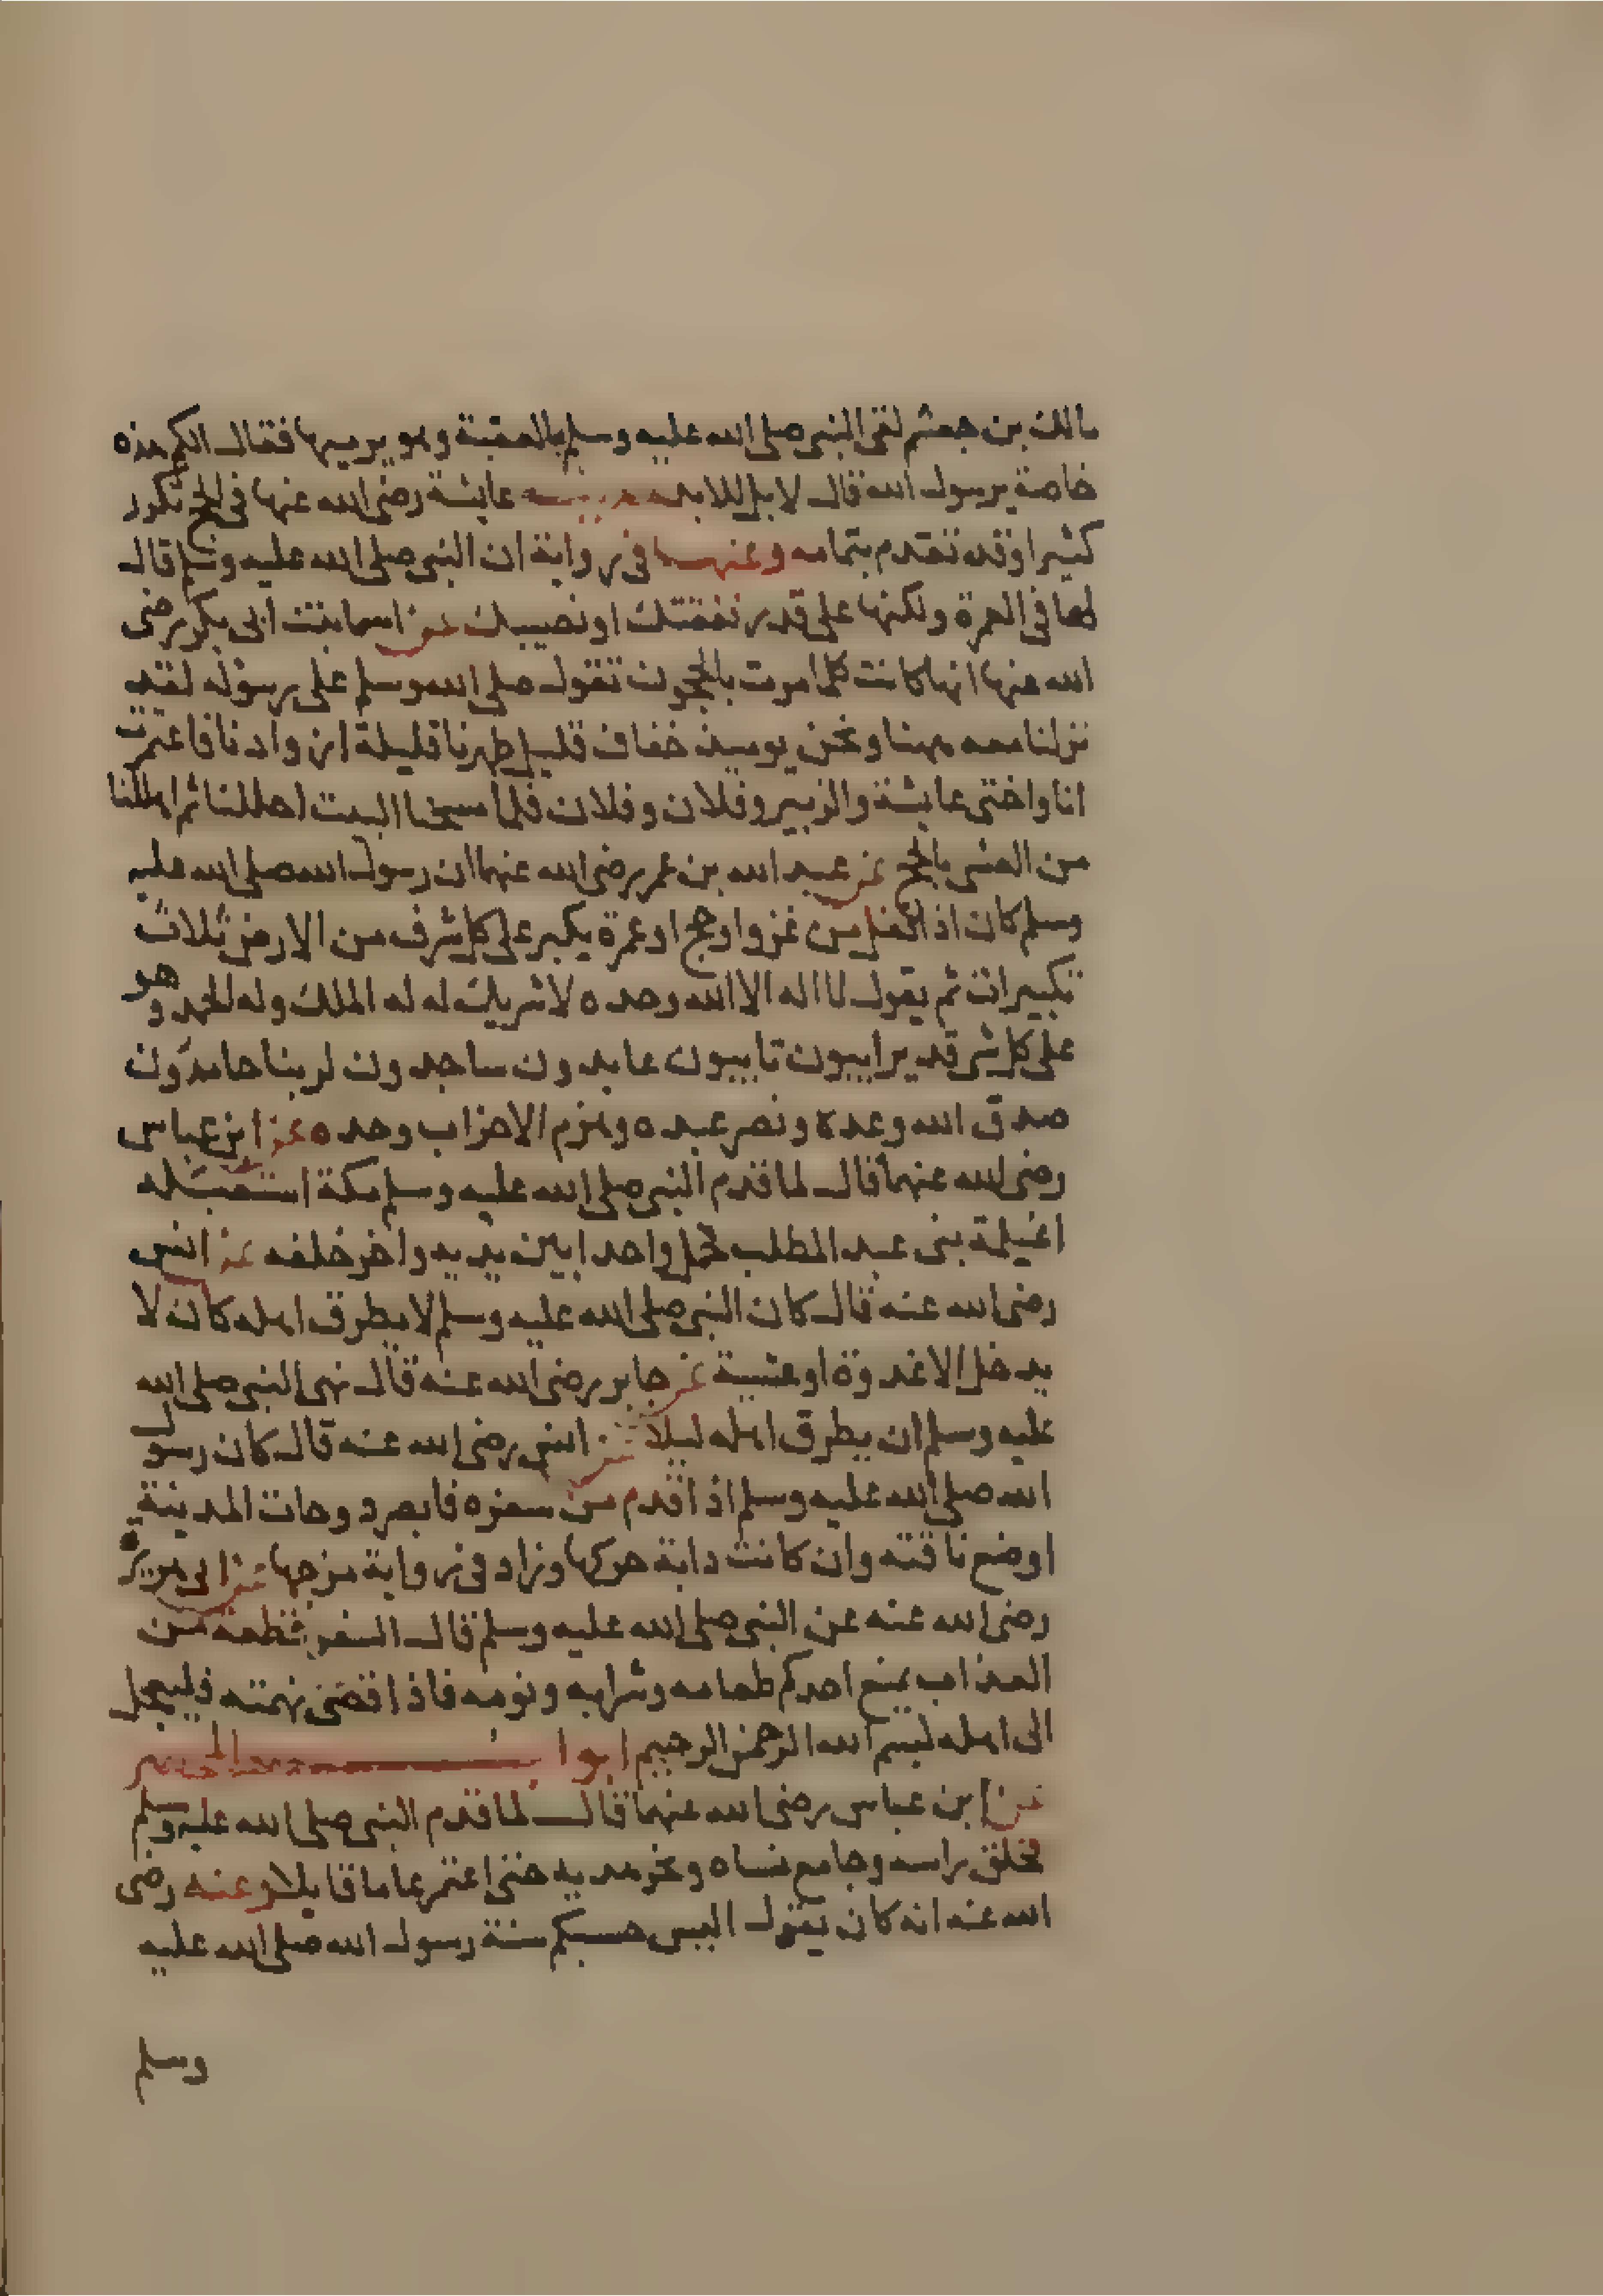 مالك بن جعشم لقى النبى صلى الله عليه وسلم بالعقبة وهو يرميها فقال الكم هذه
خاصة يرسول الله قال لا بل للابد حديث عايشة رضى الله عنها فى الحج تكرر
كثيرا وقد تقدم بتمامه وعنها فى رواية ان النبى صلى الله عليه وسلم قال
لها فى العمرة ولكنها على قدر نفقتك او نصيبك عن اسما بنت ابى بكر رضى
الله عنها انها كانت كلما مرت بالحجون تقول صلى الله وسلم على رسوله لقد
نزلنا معه ههنا ونحن يوميذ خفاف قليل ظهرنا قليلة ازوادنا فاعتمرت
انا واختى عايشة والزبير وفلان وفلان فلما مسحنا البيت اهللنا ثم اهللنا
من العشى بالحج عن عبد الله بن عمر رضى الله عنهما ان رسول الله صلى الله عليه
وسلم كان اذا قفل من غزو او حج او عمرة يكبر على كل شرف من الارض ثلاث
تكبيرات ثم يقول لا اله الا الله وحده لا شريك له له الملك وله الحمد وهو
على كل شى قدير اييون تاييون عابدون ساجدون لربنا حامدون
صدق الله وعده ونصر عبده وهزم الاحزاب وحده عن ابن عباس
رضى الله عنهما قال لما قدم النبى صلى الله عليه وسلم مكة استقبله
اغيلمة بنى عبد المطلب فحمل واحدا بين يديه واخر خلفه عن انس
رضى الله عنه قال كان النبى صلى الله عليه وسلم لا يطرق اهله كان لا
يدخل الا غدوة او عشية عن جابر رضى الله عنه قال نهى النبى صلى الله
عليه وسلم ان يطرق اهله ليلا عن انس رضى الله عنه قال كان رسول
الله صلى الله عليه وسلم اذا قدم من سفره فابصر دوحات المدينة
اوضع ناقته وان كانت دابة حركها وزاد فى رواية من حبها عن ابى هريرة
رضى الله عنه عن النبى صلى الله عليه وسلم قال السفر قطعة من
العذاب يمنع احدكم طعامه وشرابه ونومه فاذا قضى نهمته فليعجل
الى اهله بسم الله الرحمن الرحيم ابواب المحصر
عن ابن عباس رضى الله عنهما قال لما قدم النبى صلى الله عليه وسلم
فحلق راسه وجامع نساه ونحر هديه حتى اعتمر عاما قابلا وعنه رضى
الله عنه انه كان يقول اليس حسبكم سنة رسول الله صلى الله عليه
وسلم